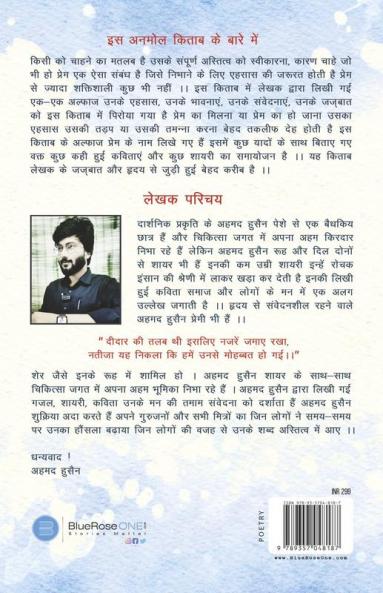 इस अनमोल किताब के बारे में
किसी को चाहने का मतलब है उसके संपूर्ण अस्तित्व को स्वीकारना, कारण चाहे जो
भी हो प्रेम एक ऐसा संबंध है जिसे निभाने के लिए एहसास की जरूरत होती है प्रेम
से ज्यादा शक्तिशाली कुछ भी नहीं ।। इस किताब में लेखक द्वारा लिखी गई
एक-एक अल्फाज उनके एहसास, उनके भावनाएं, उनके संवेदनाएं, उनके जज़्बात
को इस किताब में पिरोया गया है प्रेम का मिलना या प्रेम का हो जाना उसका
एहसास उसकी तड़प या उसकी तमन्ना करना बेहद तकलीफ देह होती है इस
किताब के अल्फाज प्रेम के नाम लिखे गए हैं इसमें कुछ यादों के साथ बिताए गए
वक्त कुछ कही हुई कविताएं और कुछ शायरी का समायोजन है ।। यह किताब
लेखक के जज़्बात और हृदय से जुड़ी हुई बेहद करीब है ।।
लेखक परिचय
दार्शनिक प्रकृति के अहमद हुसैन पेशे से एक वैधकिय
छात्र हैं और चिकित्सा जगत में अपना अहम किरदार
निभा रहे हैं लेकिन अहमद हुसैन रूह और दिल दोनों
से शायर भी हैं इनकी कम उम्री शायरी इन्हें रोचक
इंसान की श्रेणी में लाकर खड़ा कर देती है इनकी लिखी
हुई कविता समाज और लोगों के मन में एक अलग
उल्लेख जगाती है ।। हृदय से संवेदनशील रहने वाले
अहमद हुसैन प्रेमी भी हैं ।।
" दीदार की तलब थी इसलिए नजरें जमाए रखा,
नतीजा यह निकला कि हमें उनसे मोहब्बत हो गई।।"
शेर जैसे इनके रूह में शामिल हो । अहमद हुसैन शायर के साथ-साथ
चिकित्सा जगत में अपना अहम भूमिका निभा रहे हैं । अहमद हुसैन द्वारा लिखी गई
गजल, शायरी, कविता उनके मन की तमाम संवेदना को दर्शाता हैं अहमद हुसैन
शुक्रिया अदा करते हैं अपने गुरुजनों और सभी मित्रों का जिन लोगों ने समय-समय
पर उनका हौंसला बढ़ाया जिन लोगों की वजह से उनके शब्द अस्तित्व में आए ।।
धन्यवाद !
अहमद हुसैन
INR 299
POETRY
BlueRose ONE
Stories Matter
9 789357 048187
www.BlueRoseOne.com